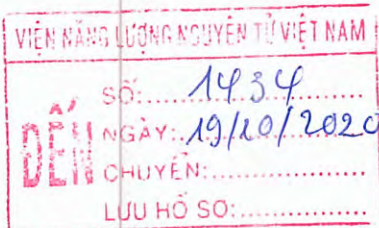 VIỆN NĂNG LƯỢNG NGUYÊN TỬ VIỆT NAM
ĐẾN
SỐ:..... 1434
NGÀY: 19/10/2020
CHUYỂN:....................
LƯU HỒ SƠ:................